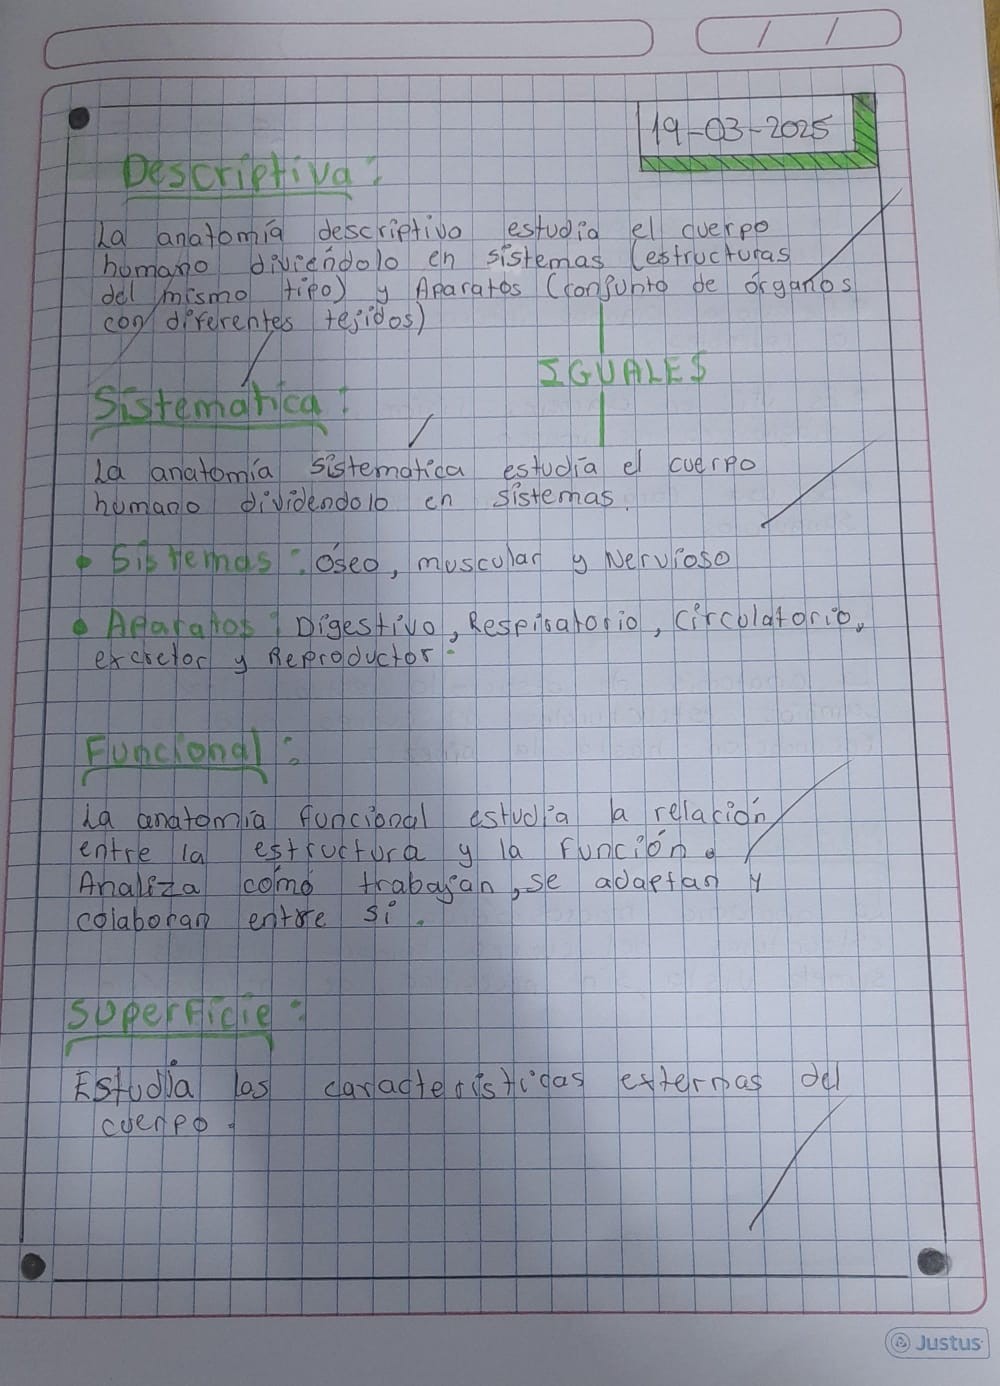 / /
19-03-2025
Descriptiva:
La anatomía descriptiva estudia el cuerpo
humano diviéndolo en sistemas (estructuras
del mismo tipo) y Aparatos (conjunto de órganos
con diferentes tejidos)
IGUALES
Sistematica:
La anatomía sistematica estudia el cuerpo
humano dividendolo en sistemas.
• Sistemas: óseo, muscular y Nervioso
• Aparatos: Digestivo, Respiratorio, Circulatorio,
excretor y Reproductor.
Funcional:
La anatomía funcional estudia la relación
entre la estructura y la función.
Analiza como trabajan, se adaptan y
colaboran entre si.
Superficie:
Estudia las caracteristicas externas del
cuerpo.
Justus